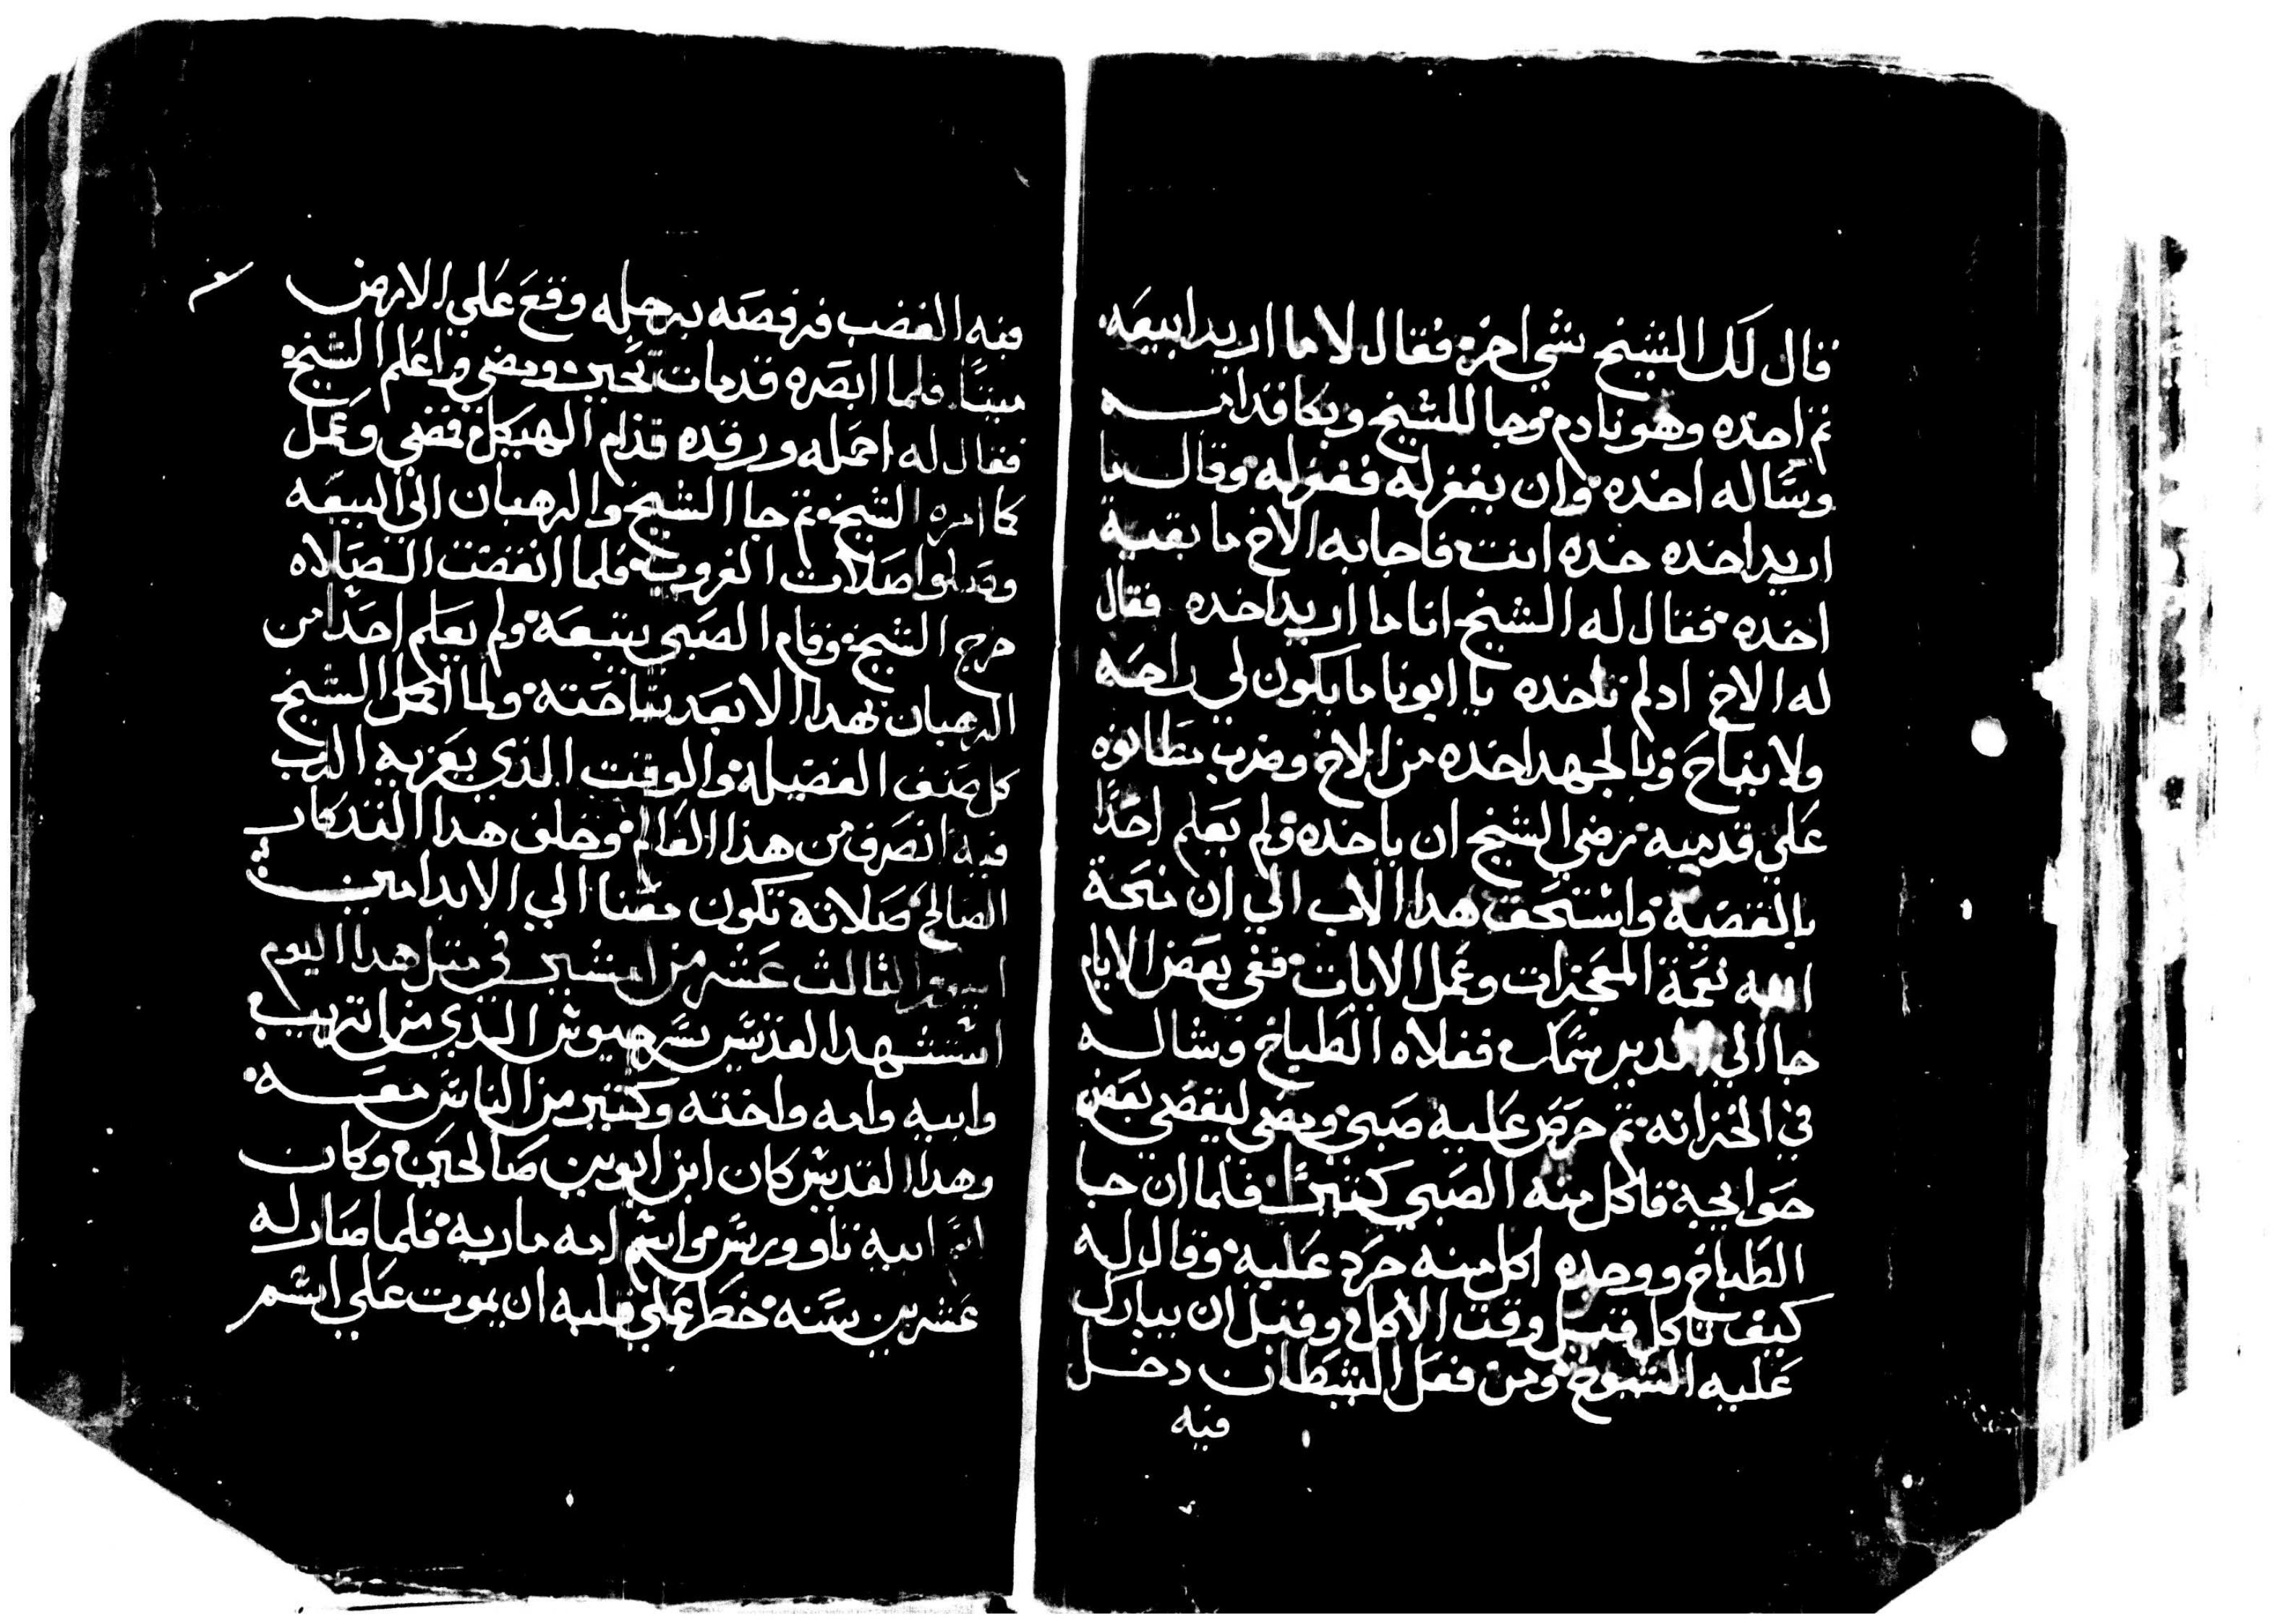 قال لك الشيخ شي اخر فقال لا ما اريد ابيعه
ثم اخده وهو نادم وجا للشيخ وبكا قدامـــه
وساله اخده وان يغفر له فغفر له وقال ما
اريد اخده خده انت فاجابه الاخ ما بقيت
اخده فقال له الشيخ انا ما اريد اخده فقال
له الاخ ادلم تاخده يا ابونا ما يكون لي راحه
ولا نياح وبالجهد اخده من الاخ وضرب مطانوه
علي قدميه رضي الشيخ ان ياخده ولم يعلم احدًا
بالقضية واستحق هدا الاب الي ان منحة
الله نعمة المعجزات وعمل الايات ففي بعض الايام
جا الي الدير سمك فقلاه الطباخ وشاله
في الخزانه ثم حرص عليه صبي ومضي ليقضي بعض
حوايجة فاكل منه الصبي كثيرًا فلما ان جا
الطباخ ووجده اكل منه حرد عليه وقال له
كيف تاكل قبل وقت الاكل وقبل ان يبارك
عليه الشيوخ ومن فعل الشيطان دخل
فيه
فيه الغضب فرفصه برجله وقع علي الارض
ميتًا فلما ابصره قد مات تحير ومضي واعلم الشيخ
فقال له احمله ورقده قدام الهيكل فمضي وعمل
كما امره الشيخ ثم جا الشيخ والرهبان الي البيعه
وصلوا صلاة الغروب فلما انقضت الصلاه
خرج الشيخ وقام الصبي يتبعة ولم يعلم احدًا من
الرهبان بهدا الا بعد نياحته ولما اكمل الشيخ
كل صنف الفضيلة والوقت الذي يعزيه الرب
فيه انصرف من هذا العالم وخلف هدا التدكار
الصالح صلاته تكون معنا الي الابد امين
اليوم الثالث عشر من امشير في مثل هدا اليوم
استشهد القديس سرجيوش الذي من اتريب
وابيه وامه واخته وكثير من الناس معـــه
وهدا القديس كان ابن ابوين صالحين وكان
اسم ابيه تاوورس واسم امه مارية فلما صار له
عشرين سنه خطر علي قلبه ان يموت علي اسم